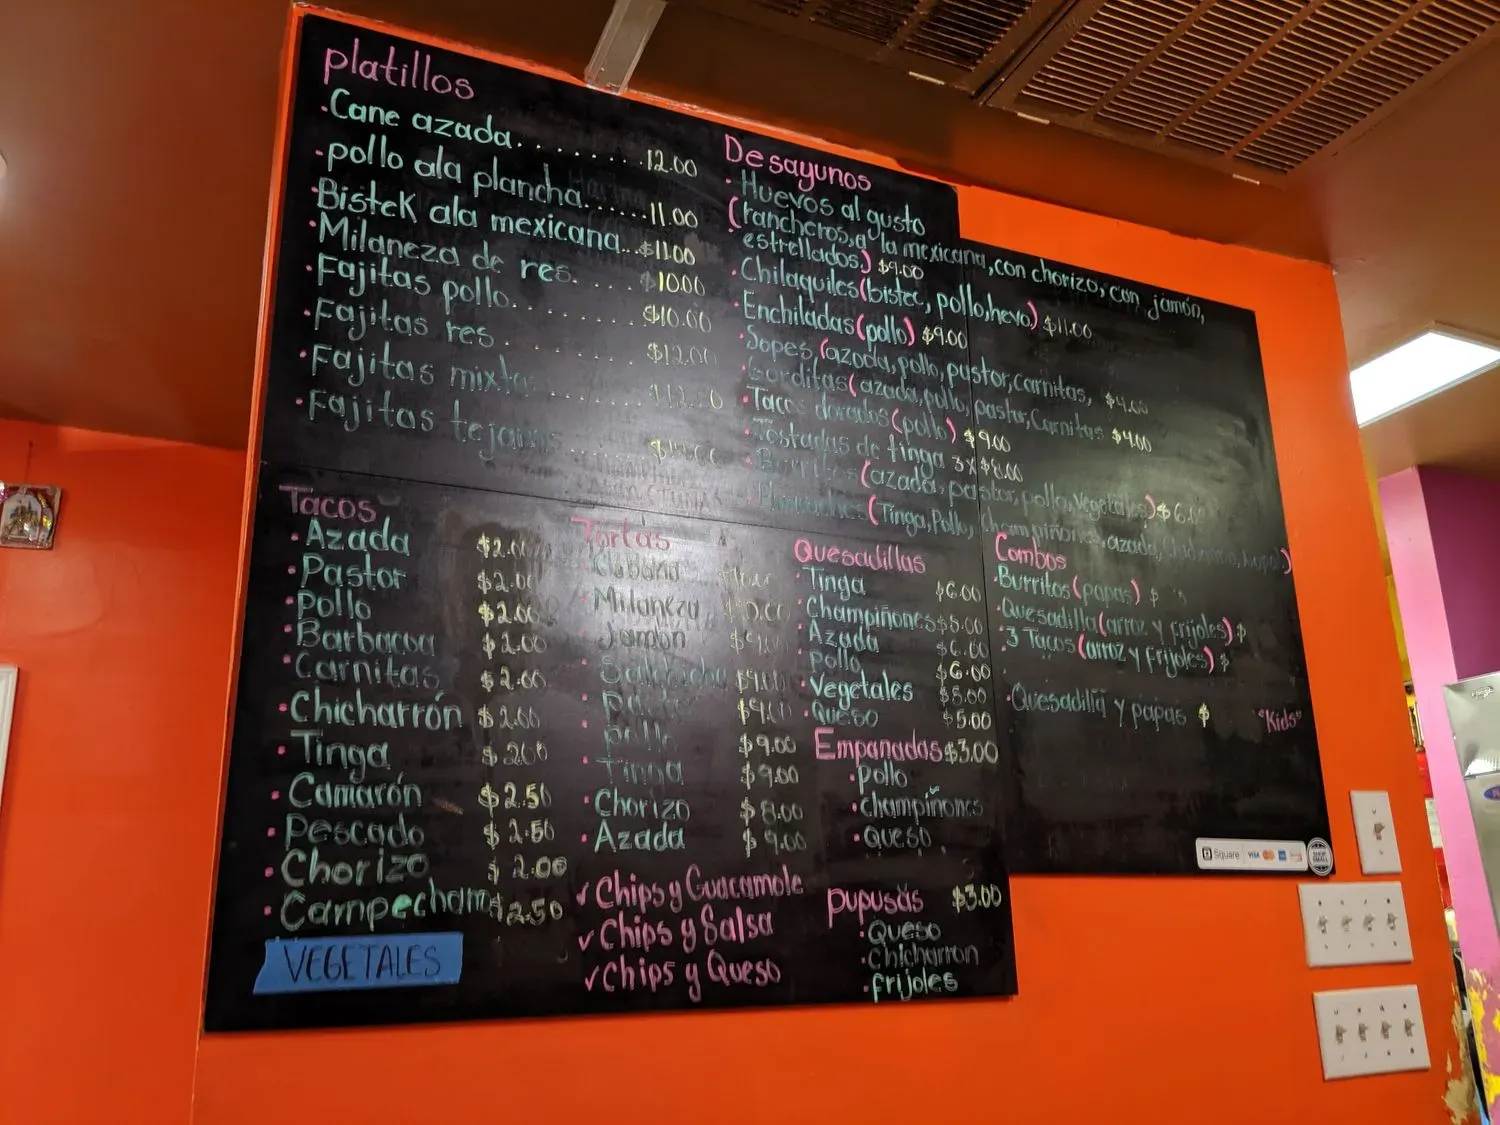 platillos
·Cane azada........12.00
·pollo ala plancha......11.00
·Bistek ala mexicana...$11.00
·Milaneza de res.....$10.00
·Fajitas pollo..........$10.00
·Fajitas res..........$12.00
·Fajitas mixtas
·Fajitas
Desayunos
·Huevos al gusto
(rancheros,a la mexicana,con chorizo, con jamón,
estrellados.) $9.00
·Chilaquiles(bistec, pollo,hevo) $11.00
·Enchiladas(pollo) $9.00
·Sopes,(azada,pollo,pastor,carnitas, $4.00
·Gorditas(azada,pollo,pastor,Carnitas $4.00
·Tacos dorados(pollo) $9.00
·Tostadas de tinga 3x$8.00
·Burritos(azada,pastor,pollo,vegetales)$6.
(Tinga,Pollo, champiñones,azada,
Tacos
·Azada $2.00
·Pastor $2.00
·Pollo $2.00
·Barbacoa $2.00
·Carnitas $2.00
·Chicharrón $2.00
·Tinga $2.00
·Camarón $2.50
·Pescado $2.50
·Chorizo $2.00
·Campechano $2.50
VEGETALES
Tortas
Cubana
Milaneza
Jamon
Salchicha $9.00
$9.00
pollo $9.00
Tinga $9.00
·Chorizo $8.00
·Azada $9.00
✓Chips y Guacamole
✓Chips y Salsa
✓Chips y Queso
Quesadillas
·Tinga $6.00
·Champiñones$5.00
·Azada $6.00
·Pollo $6.00
·Vegetales $5.00
·Queso $5.00
Empanadas$3.00
·pollo
·champiñones
·Queso
pupusas $3.00
·Queso
·chicharron
·frijoles
Combos
·Burritos(papas) $
·Quesadilla(arroz y frijoles) $
·3 Tacos(arroz y frijoles) $
·Quesadilla y papas $ "Kids"
Square VISA
SHOP SMALL